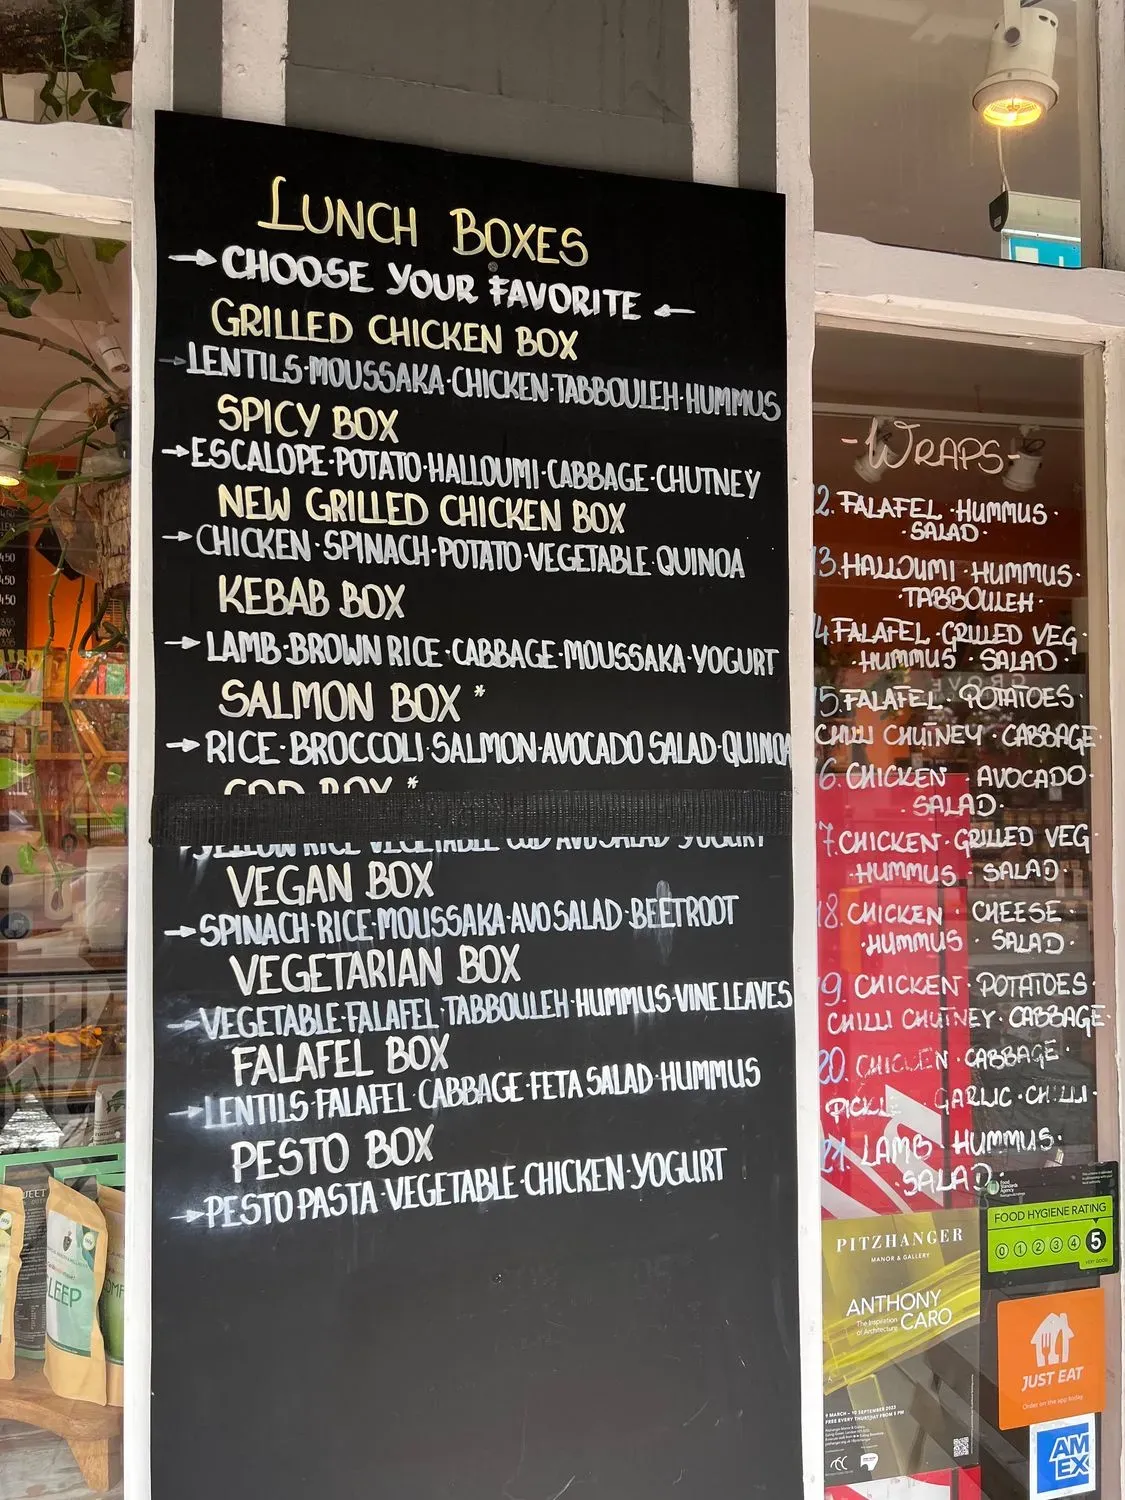 LUNCH BOXES
→ CHOOSE YOUR FAVORITE ←
GRILLED CHICKEN BOX
→ LENTILS·MOUSSAKA·CHICKEN·TABBOULEH·HUMMUS
SPICY BOX
→ ESCALOPE·POTATO·HALLOUMI·CABBAGE·CHUTNEY
NEW GRILLED CHICKEN BOX
→ CHICKEN·SPINACH·POTATO·VEGETABLE·QUINOA
KEBAB BOX
→ LAMB·BROWN RICE·CABBAGE·MOUSSAKA·YOGURT
SALMON BOX *
→ RICE·BROCCOLI·SALMON·AVOCADO SALAD·QUINOA
COD BOX *
YELLOW RICE VEGETABLE COD AVO SALAD YOGURT
VEGAN BOX
→ SPINACH·RICE·MOUSSAKA·AVO SALAD·BEETROOT
VEGETARIAN BOX
→ VEGETABLE·FALAFEL·TABBOULEH·HUMMUS·VINE LEAVES
FALAFEL BOX
→ LENTILS·FALAFEL·CABBAGE·FETA SALAD·HUMMUS
PESTO BOX
→ PESTO PASTA·VEGETABLE·CHICKEN·YOGURT
-WRAPS-
12. FALAFEL·HUMMUS·
·SALAD·
13. HALLOUMI·HUMMUS·
·TABBOULEH·
14. FALAFEL·GRILLED VEG·
·HUMMUS·SALAD·
15. FALAFEL·POTATOES·
CHILLI CHUTNEY·CABBAGE·
16. CHICKEN·AVOCADO·
·SALAD·
17. CHICKEN·GRILLED VEG·
·HUMMUS·SALAD·
18. CHICKEN·CHEESE·
·HUMMUS·SALAD·
19. CHICKEN·POTATOES·
CHILLI CHUTNEY·CABBAGE·
20. CHICKEN·CABBAGE·
PICKLE GARLIC·CHILLI·
21. LAMB·HUMMUS·
·SALAD·
Food Standards Agency
FOOD HYGIENE RATING
0 1 2 3 4 5
VERY GOOD
PITZHANGER
MANOR & GALLERY
ANTHONY
CARO
The Inspiration
of Architecture
9 MARCH – 10 SEPTEMBER 2023
FREE EVERY THURSDAY FROM 5 PM
JUST EAT
Order on the app today
AM
EX
LEEP